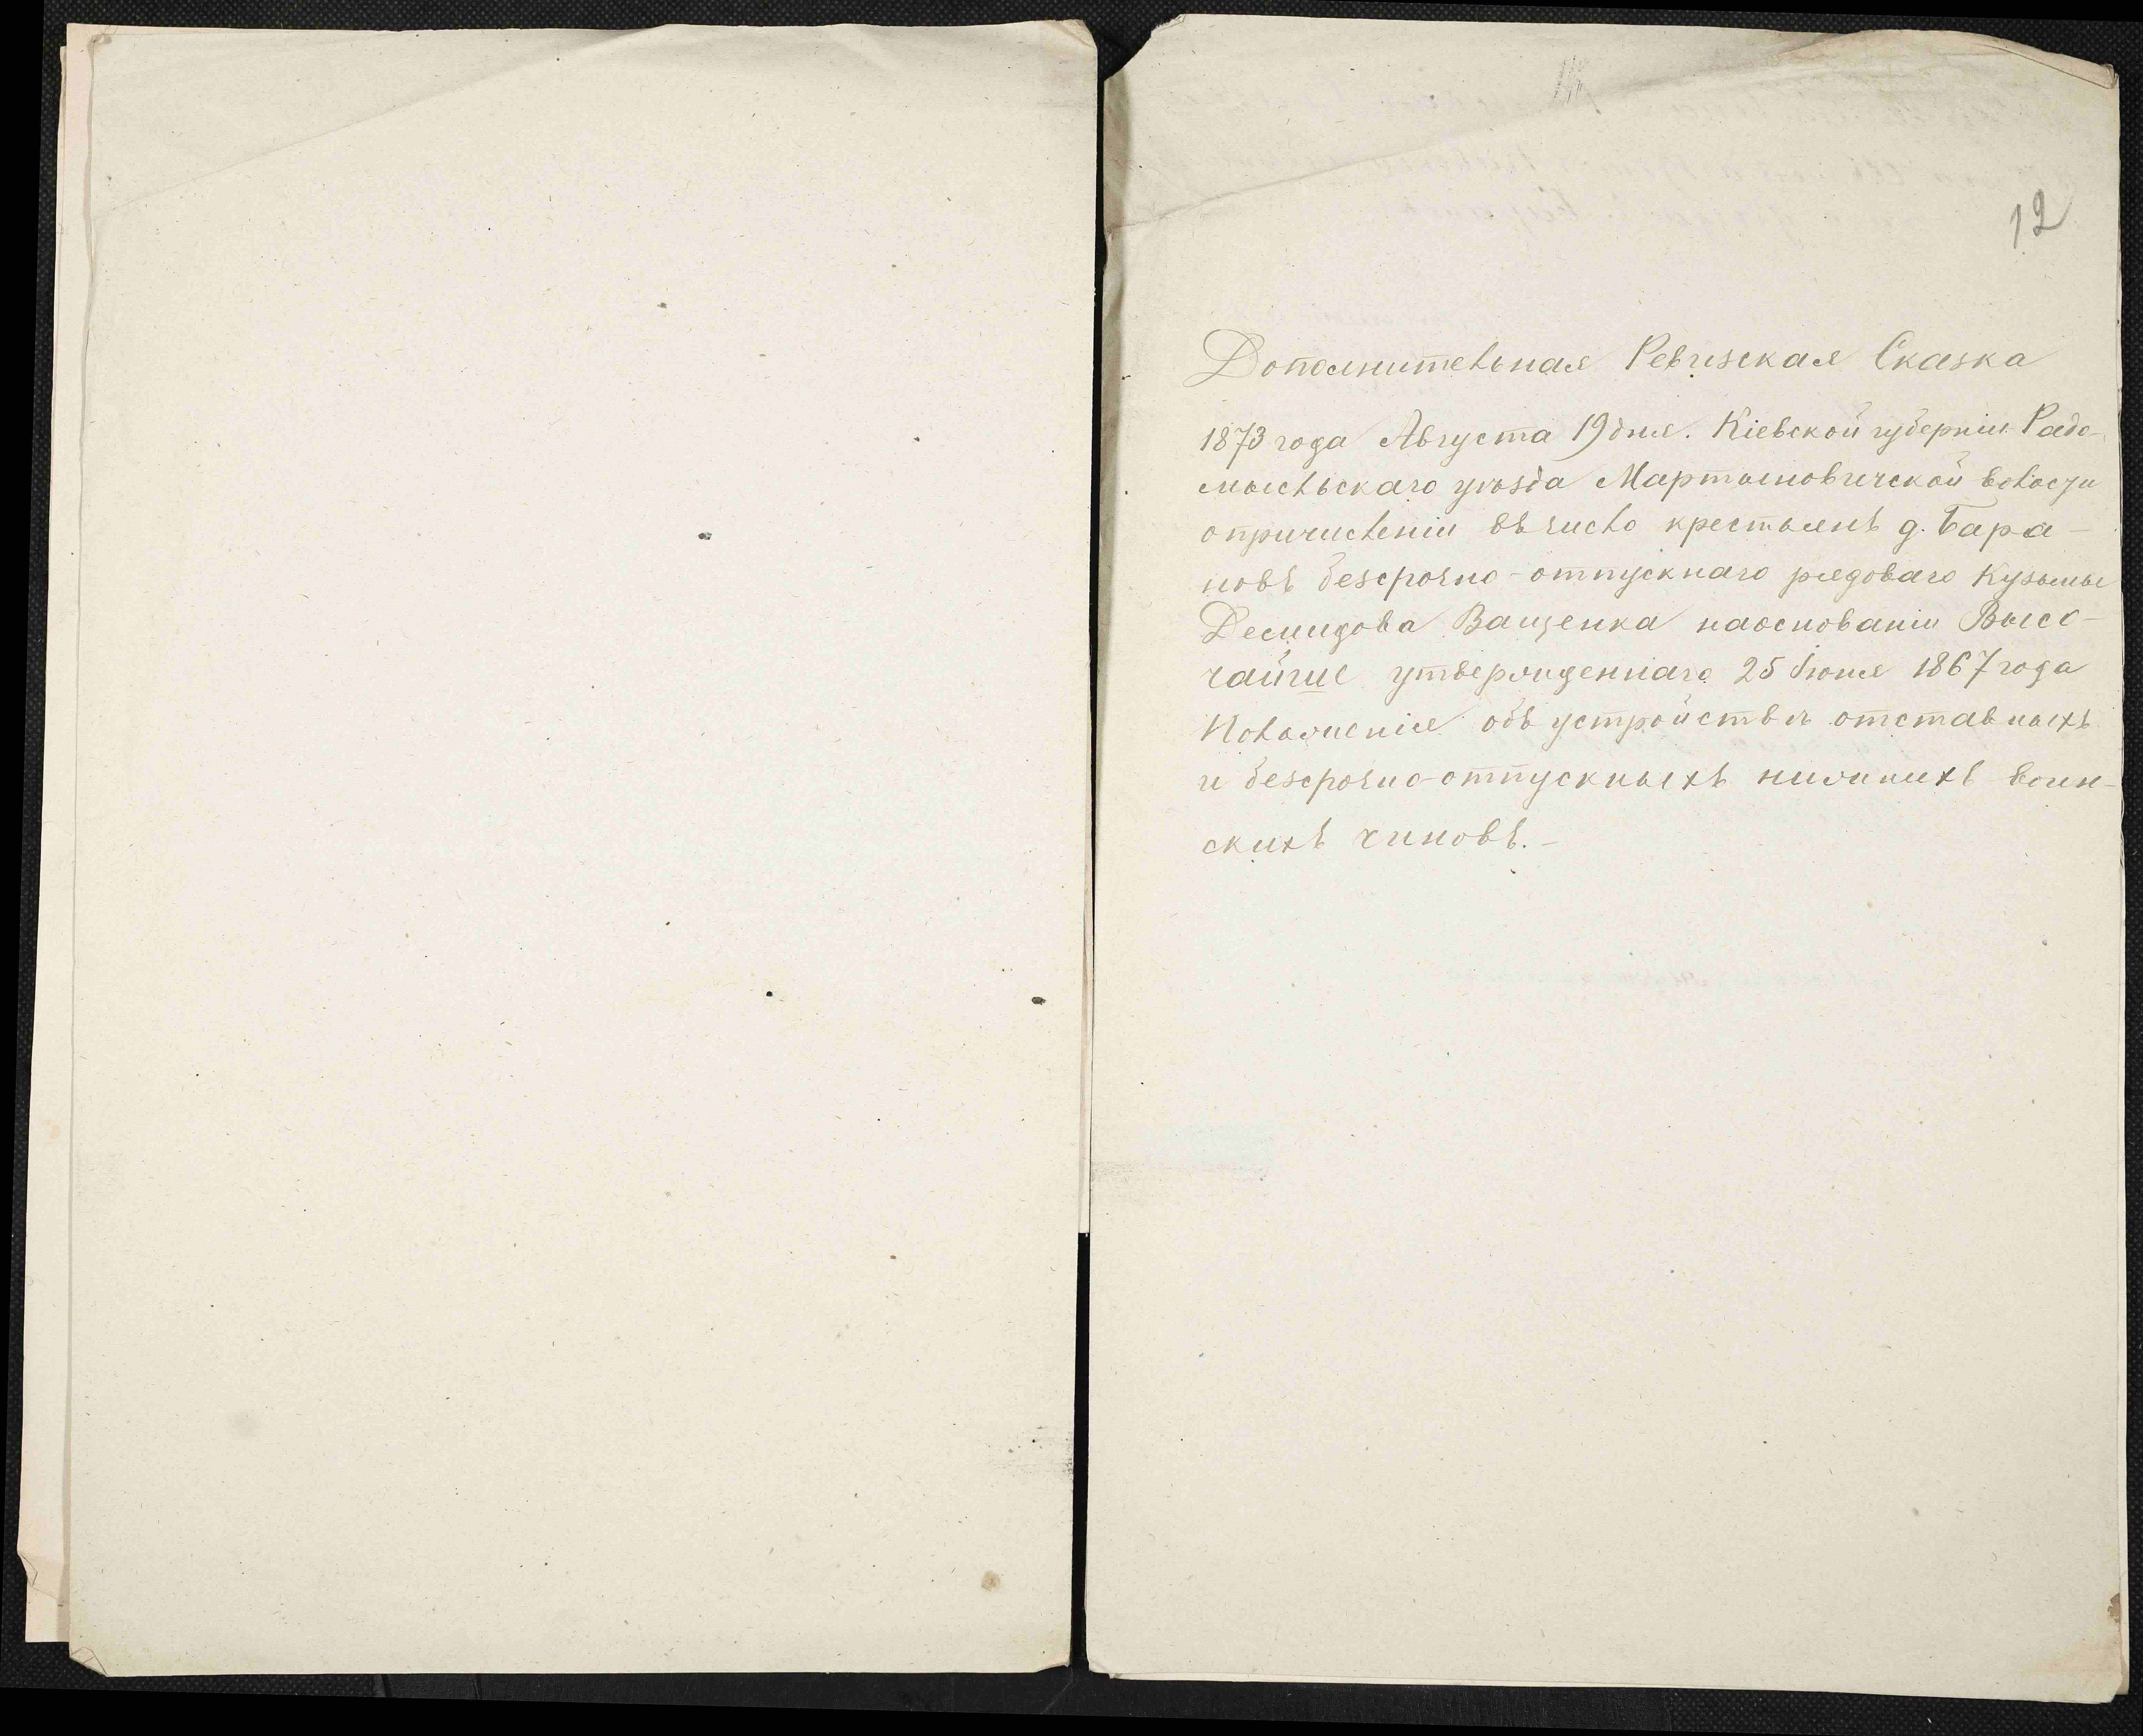 12
Дополнительная Ревизская Сказка
1873 года Августа 19 дня. Кіевской губерніи Радо-
мысльскаго уѣзда Мартыновичской волости
о причисленіи въ число крестьянъ д. Бара-
новъ безсрочно-отпускнаго рядоваго Кузьмы
Демидова Ващенка наоснованіи Высо-
чайше утвержденнаго 25 Іюня 1867 года
Положенія объ устройствѣ отставныхъ
и безсрочно-отпускныхъ нижнихъ воин-
скихъ чиновъ.-